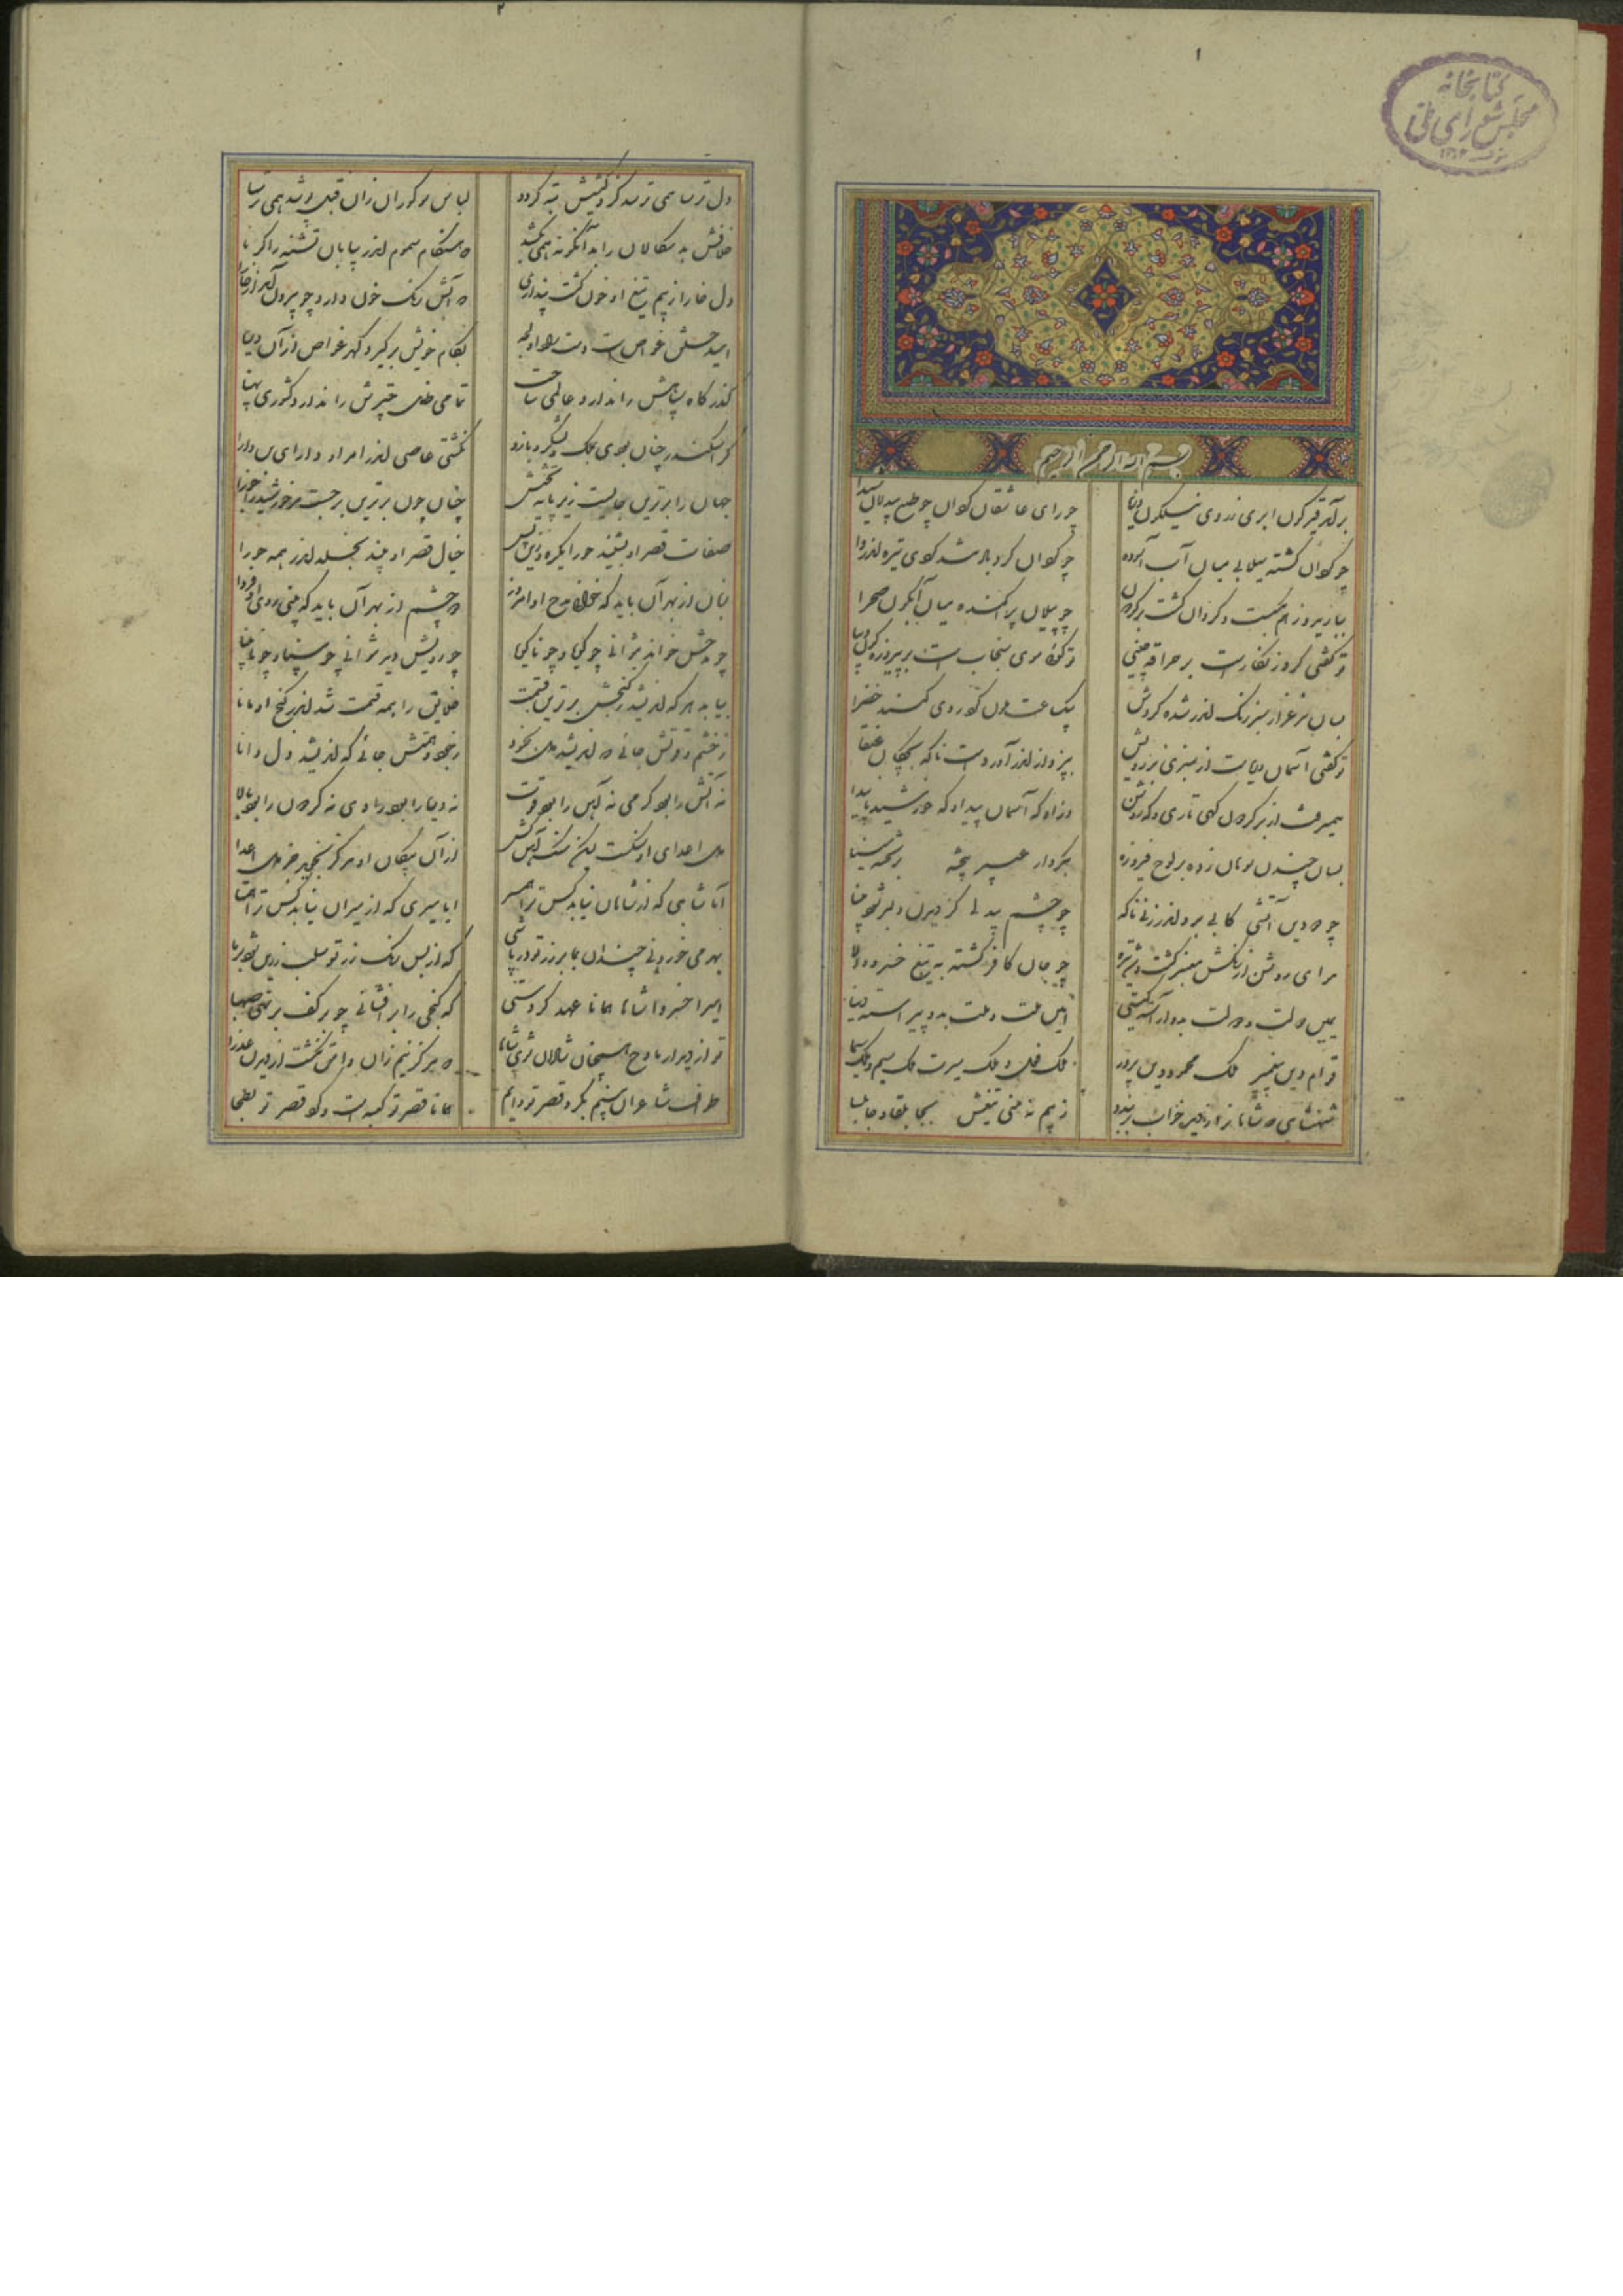 کتابخانه
مجلس شورای ملی
۱
بسم الله الرحمن الرحیم
برآمد قیرگون ابری ز روی نیلگون دریا چو رای عاشقان گردان چو طبع بیدلان شیدا
چو گردان گشته سیلابی میان آب آسوده چو گردان گردباد شد گوی تیره اندر وا
ببارید و ز هم بگسست و گردان گشت بر گردون چو پیلان پراکنده میان آبگون صحرا
تو گفتی گرد زنگارست بر مرآت چینی تو گوئی موی سنجاب است بر پیروزه گون دیبا
بسان مرغزار سبز رنگ اندر شده گردش بیک ساعت ملون کرد روی گنبد خضرا
تو گفتی آسمان دریاست از سبزی بر رویش بپرواز اندر آوردست ناگه بچگان عنقا
همیرفت از بر گردون گهی تاری و گه روشن وزو گه آسمان پیدا و گه خورشید ناپیدا
بسان چندن سوهان زده بر لوح فیروزه بکردار عبیر بیخته بر تخته مینا
چو دودین آتشی کابی برو اندر زنی ناگه چو چشم بیدلی کز دیدن دلبر شود بینا
هوای روشن از رنگش مغبر گشت و شد تیره چو جان کافر کشته به تیغ خسرو والا
یمین دولت و دولت بدو آراسته گیتی امین ملت و ملت بدو پیراسته دنیا
قوام دین پیغمبر ملک محمود دین پرور ملک فعل و ملک سیرت ملک سهم و ملک سیما
شهنشاهی که شاهانرا ز دیده خواب برباید ز بیم نه منی تیغش بجا بلقا و جابلسا
۲
دل ترسا همی ترسد کز و کیشش تبه گردد لباس سوگوران زان قبل پوشد همی ترسا
خلافش بد سگالان را بدانگونه همی بکشد که هنگام سموم اندر بیابان تشنه را گرما
دل خارا ز بیم تیغ او خون گشت پنداری که آتش رنگ خون دارد چو بیرون آید از خارا
امید خلق غواص است و دست راد او دریا بکام خویش برگیرد گهر غواص از آن دریا
گذرگاه سپاهش را ندارد عالمی ساحت تمامی ظل چترش را ندارد کشوری پهنا
گر اسکندر چنان بودی بملک و لشکر و بازو نگشتی عاصی اندر امر او دارای بن دارا
جهان را برترین جایست زیر پایه تختش چنان چون برترین برجست مر خورشید را جوزا
صفات قصر او بشنید حورا یکره و زان پس خیال قصر او بیند بخلد اندر همه حورا
زبان از بهر آن باید که خوانی مدح او امروز دو چشم از بهر آن باید که بینی روی او فردا
چو مدحش خواند نتوانی چو گویا و چو ناگویا چو رویش دید نتوانی چو بینا و چو نابینا
بیابد هر که اندیشد ز گنجش برترین قسمت خلایق را همه قسمت شد اندر گنج او مانا
ز خشم و قوتش جائی که اندیشد دل بخرد ز جود و همتش جائی که اندیشد دل دانا
نه آتش را بود گرمی نه آهن را بود قوت نه دریا را بود رادی نه گردون را بود بالا
دل اعدای او سنگست لیکن سنگ آهن کش از آن پیکان او هرگز نجوید جز دل اعدا
ایا شاهی که از شاهان نیاید کس ترا همسر ایا میری که از میران نیاید کس ترا همتا
بهر می خوردنی چندان بما بر زر تو درپاشی که از بس رنگ زر تو سلب زرین شود بر ما
امیرا خسروا شاها همانا عهد کردستی که گنجی را برافشانی چو بر کف برنهی صهبا
تو از دیدار مادح همچنان شادان شوی شاها که هرگز نیم زان وامق نگشت از دیدن عذرا
طواف شاعران بینم بگرد قصر تو دایم همانا قصر تو کعبه است و گرد قصر تو بطحا